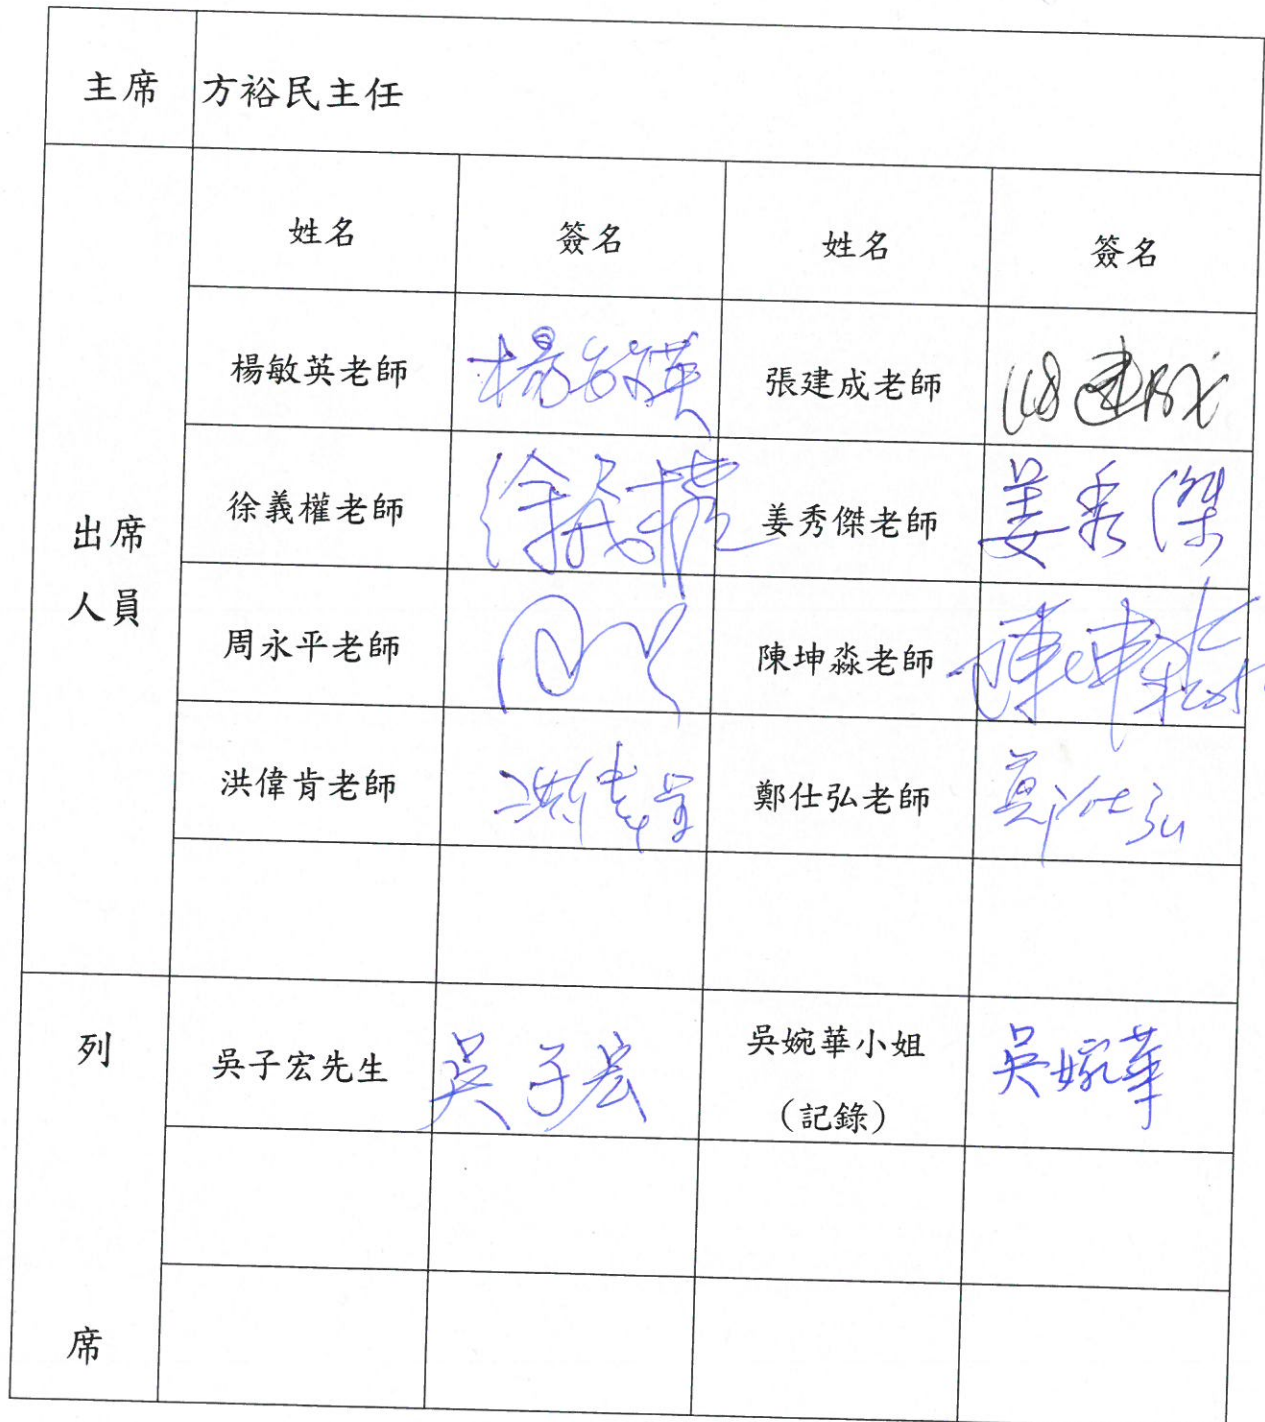 主席 方裕民主任
姓名 簽名 姓名 簽名
楊敏英老師 楊敏英 張建成老師 張建成
出席
人員
徐義權老師 徐義權 姜秀傑老師 姜秀傑
周永平老師 陳坤淼老師 陳坤淼
洪偉肯老師 洪偉肯 鄭仕弘老師 鄭仕弘
列
席
吳子宏先生 吳子宏 吳婉華小姐 吳婉華
(記錄)